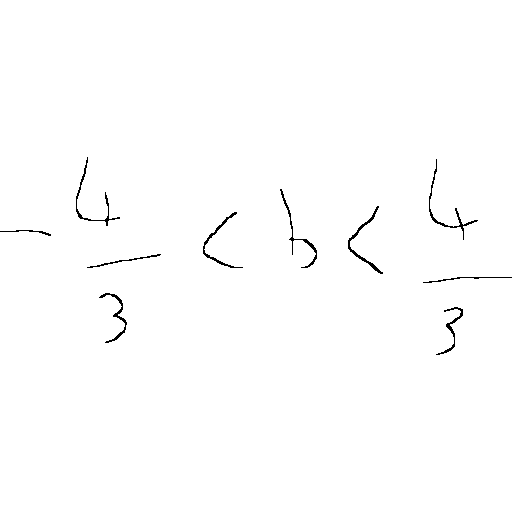 -\frac{4}{3} < b < \frac{4}{3}